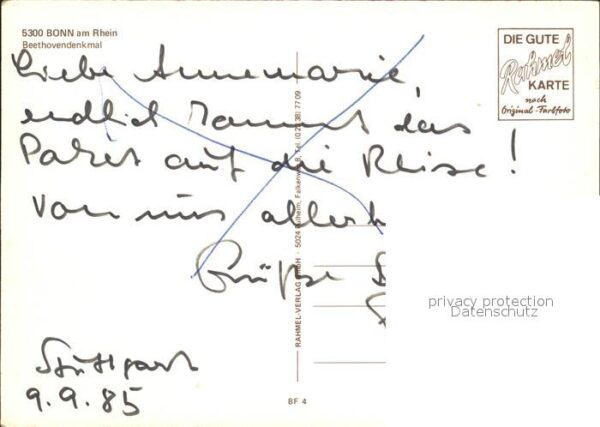 5300 BONN am Rhein
Beethovendenkmal
DIE GUTE
Rahmel
KARTE
nach
Original-Farbfoto
Liebe Annemarie,
endlich kommt das
Paket auf die Reise!
Von uns allerh
Grüße
Stuttgart
9.9.85
RAHMEL-VERLAG GMBH · 5024 Pulheim, Falkenweg 8, Tel. (0 22 38) 77 09
BF 4
privacy protection
Datenschutz